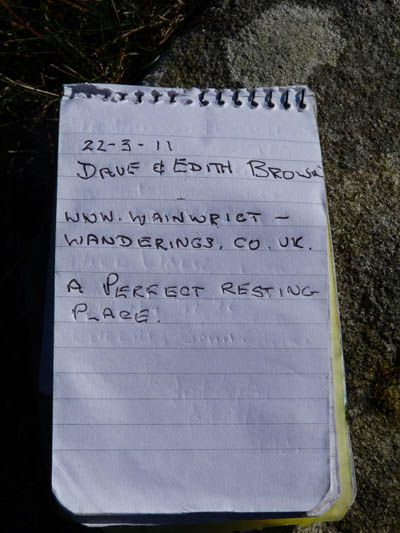 22-3-11
DAVE & EDITH BROWN
WWW.WAINWRIGT -
WANDERINGS.CO.UK.
A PERFECT RESTING
PLACE.